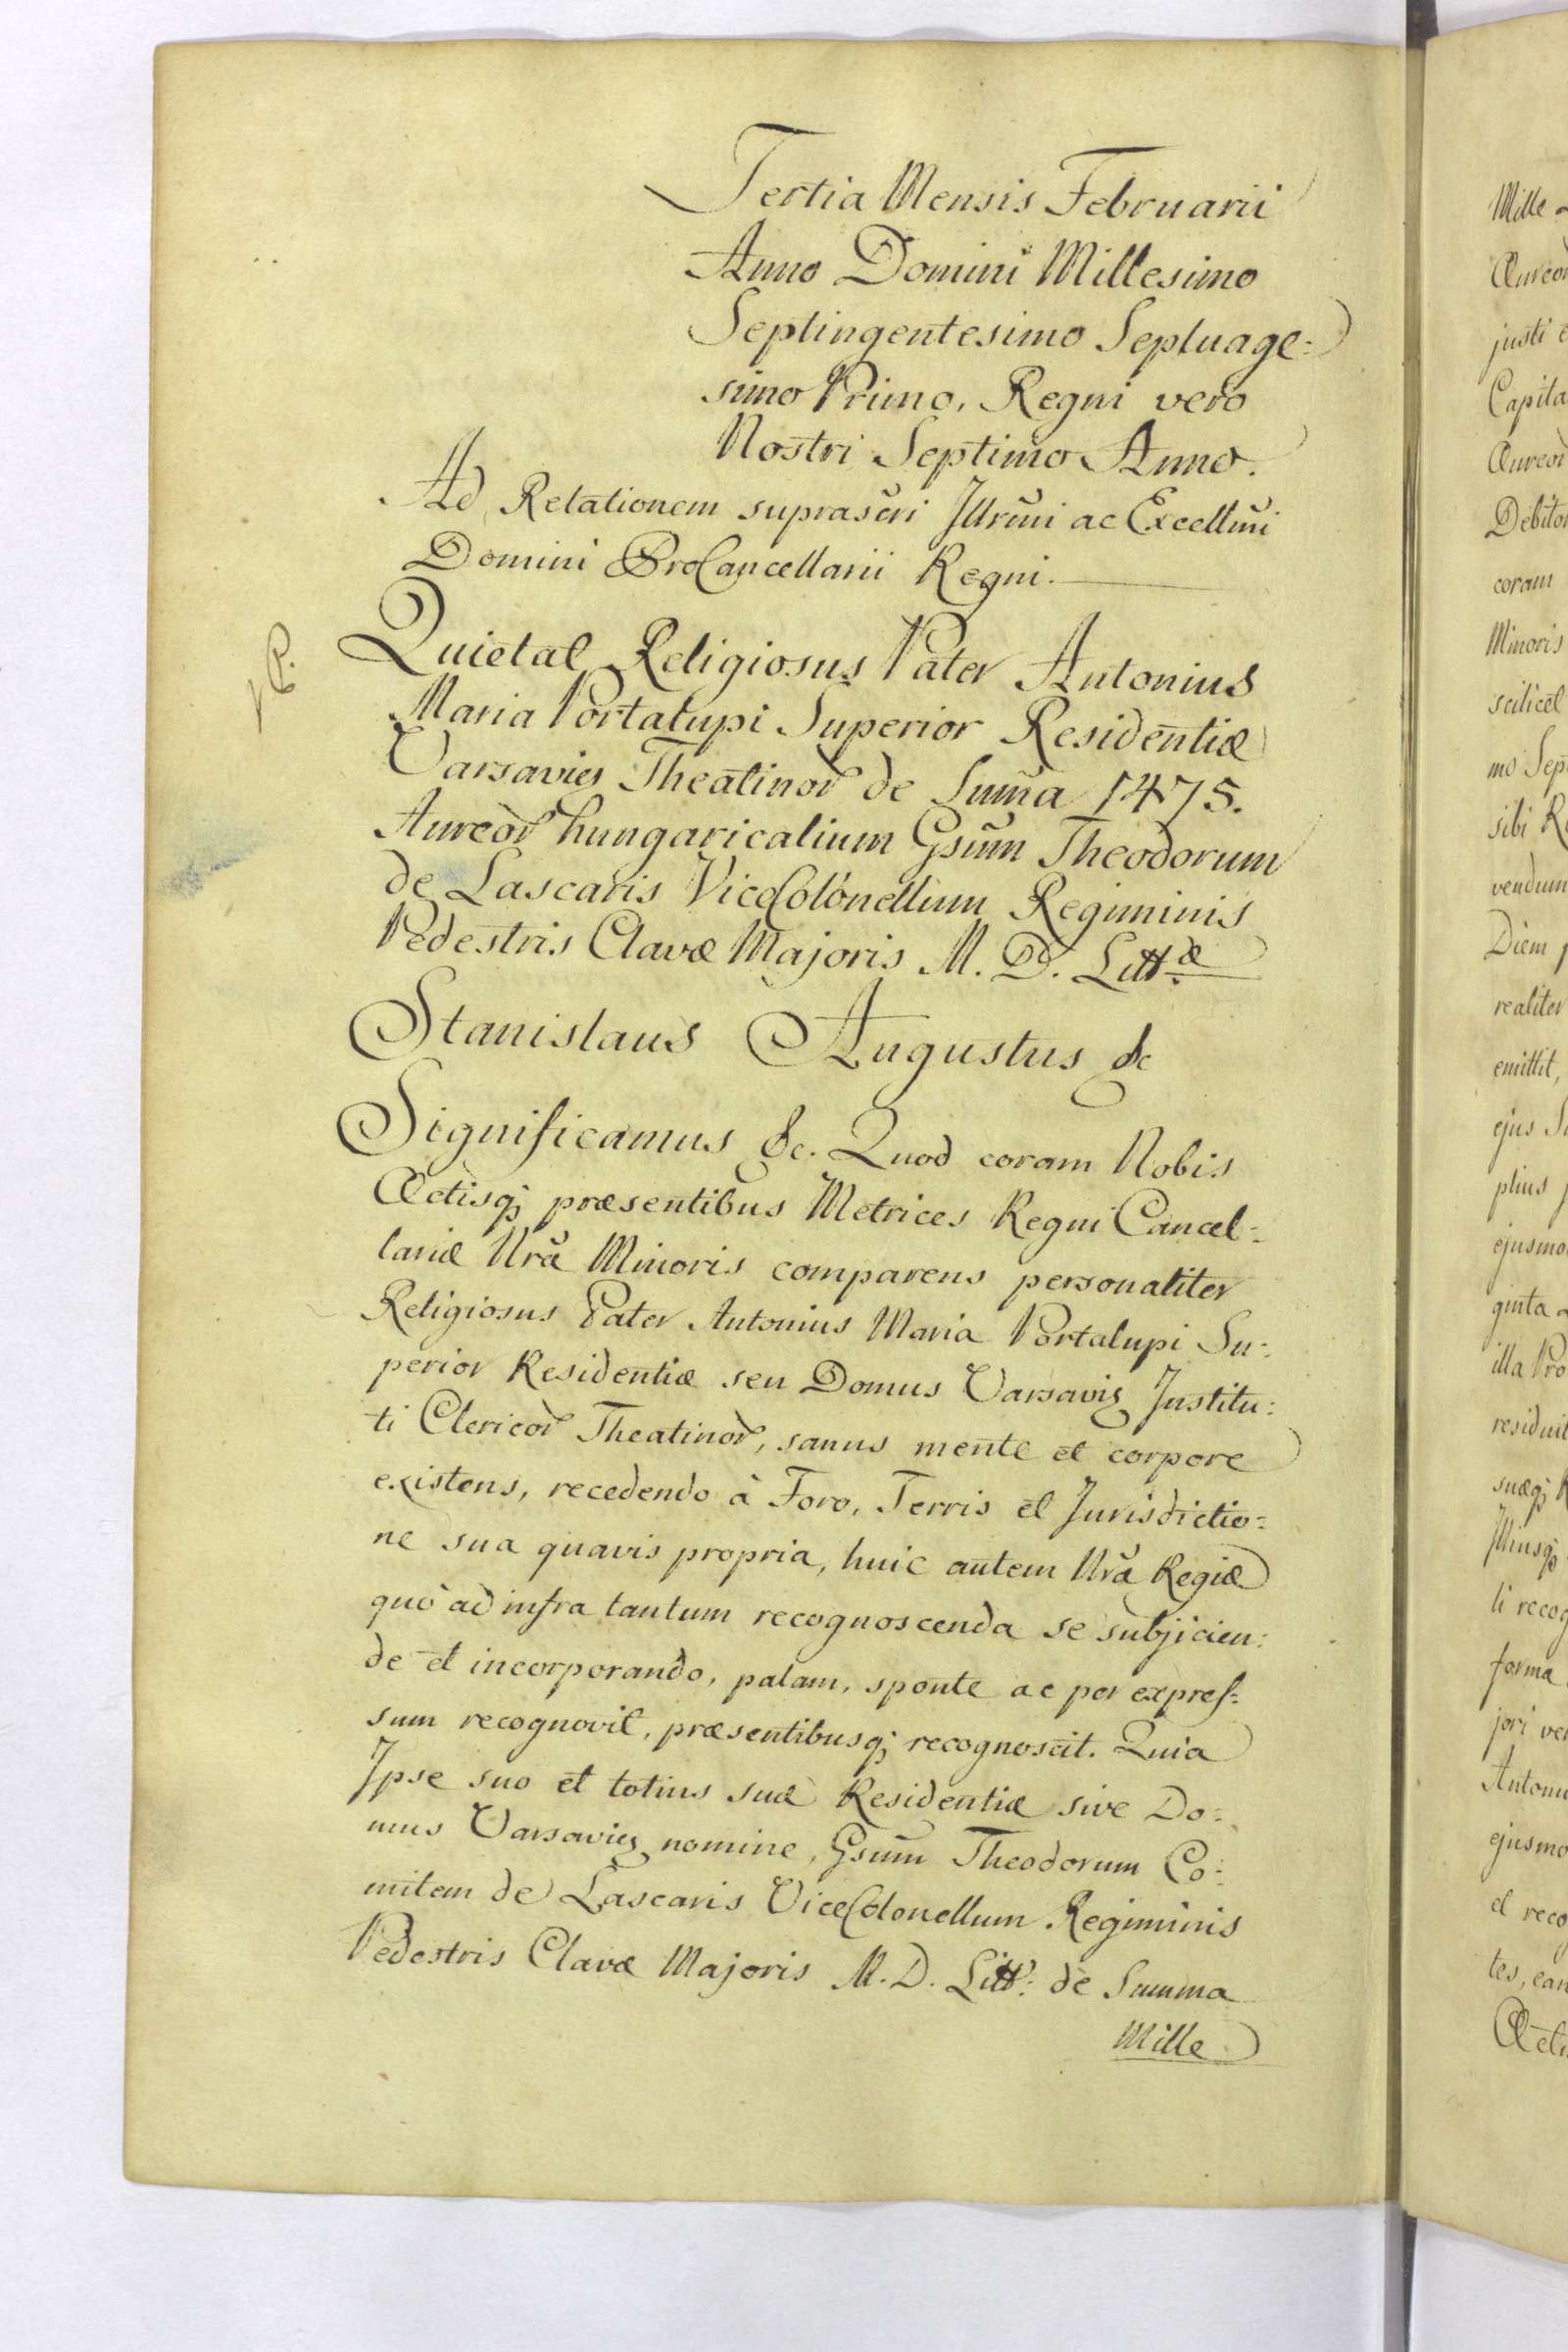 Tertia Mensis Februarii
Anno Domini Millesimo
Septingentesimo Septuage=
simo Primo, Regni vero
Nostri Septimo Anno.
Ad Relationem suprascri Jllrmi ac Excellmi
Domini ProCancellarii Regni.
Quietat Religiosus Pater Antonius
Maria Portalupi Superior Residentiæ
Varsavien Theatinor de Summa 1475.
Aureor hungaricalium Gsum Theodorum
de Lascaris ViceColonellum Regiminis
Pedestris Clavæ Majoris M. D. Littæ
Stanislaus Augustus &c
Significamus &c. Quod coram Nobis
Actisq; præsentibus Metrices Regni Cancel=
lariæ Nræ Minoris comparens personaliter
Religiosus Pater Antonius Maria Portalupi Su=
perior Residentiæ seu Domus Varsavien Justitu=
ti Clericor Theatinor, sanus mente et corpore
existens, recedendo à Foro, Terris et Jurisdictio=
ne sua quavis propria, huic autem Nræ Regiæ
quò ad infra tantum recognoscenda se subjicien=
do et incorporando, palam, sponte ac per expres=
sum recognovit, præsentibusq; recognoscit. Quia
Jpse suo et totius suæ Residentiæ sive Do=
mus Varsavien nomine, Gsum Theodorum Co=
mitem de Lascaris ViceColonellum Regiminis
Pedestris Clavæ Majoris M. D. Litt: de Summa
Mille
Mille
justi
Debitor
coram
Minoris
scilicet
sibi
vendum
Diem
realiter
emittit,
ejus
plius
ejusmo
ginta
illa Pro
residuit
suæq;
Jlliusq;
li recog
forma
jori
Antoni
ejusmo
et reco